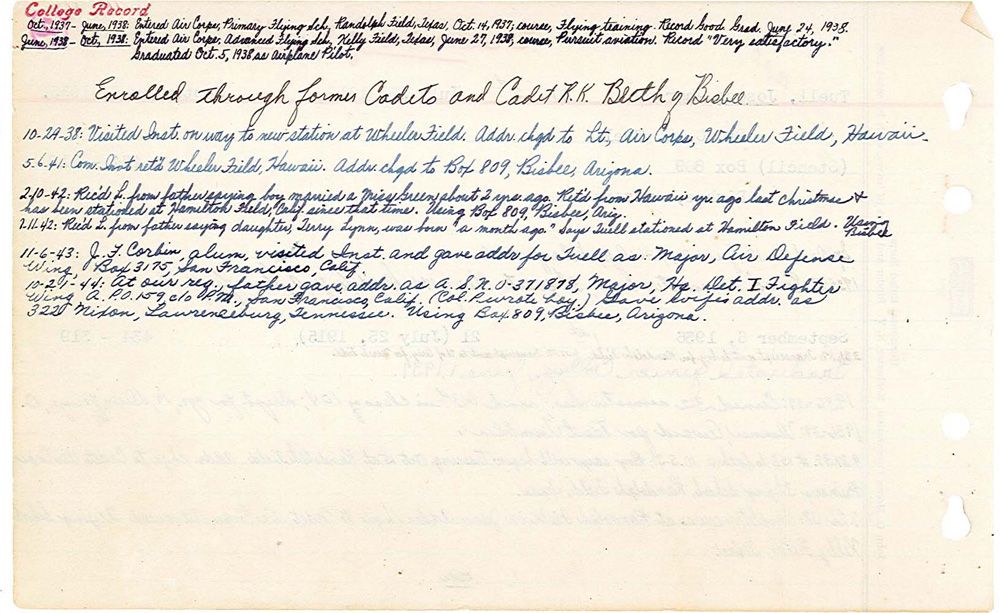 College Record
Oct., 1937 - June, 1938: Entered Air Corps, Primary Flying Sch., Randolph Field, Texas, Oct. 14, 1937; course, Flying training. Record Good. Grad. June 24, 1938.
June, 1938 - Oct., 1938: Entered Air Corps, Advanced Flying Sch., Kelly Field, Texas, June 27, 1938; course, Pursuit aviation. Record "Very satisfactory."
Graduated Oct. 5, 1938 as Airplane Pilot.
Enrolled through former Cadets and Cadet R.K. of Bisbee
10-24-38: Visited Inst. on way to new station at Wheeler Field. Addr. chgd to Lt., Air Corps, Wheeler Field, Hawaii.
5-6-41: Com. Inst ret'd Wheeler Field, Hawaii. Addr. chgd to Box 809, Bisbee, Arizona.
2-10-42: Rec'd L. from father saying boy married a Miss Green, about 2 yrs. ago. Ret'd from Hawaii yr. ago last Christmas &
has been stationed at Hamilton Field, Calif. since that time. Using Box 809, Bisbee, Ariz.
7-11-42: Rec'd L. from father saying daughter, Terry Lynn, was born "a month ago." Says Tuell stationed at Hamilton Field. Using
Bisbee
11-6-43: J. F. Corbin, alum, visited Inst. and gave addr for Tuell as: Major, Air Defense
Wing, Box 3175, San Francisco, Calif.
10-21-44: At our req., father gave addr. as A.S.N. O-371878, Major, Hq. Det. I Fighter
Wing A.P.O. 159, c/o P.M., San Francisco, Calif. (Col. R. wrote boy.) Gave wife's addr. as
322 Nixon, Lawrenceburg, Tennessee. Using Box 809, Bisbee, Arizona.